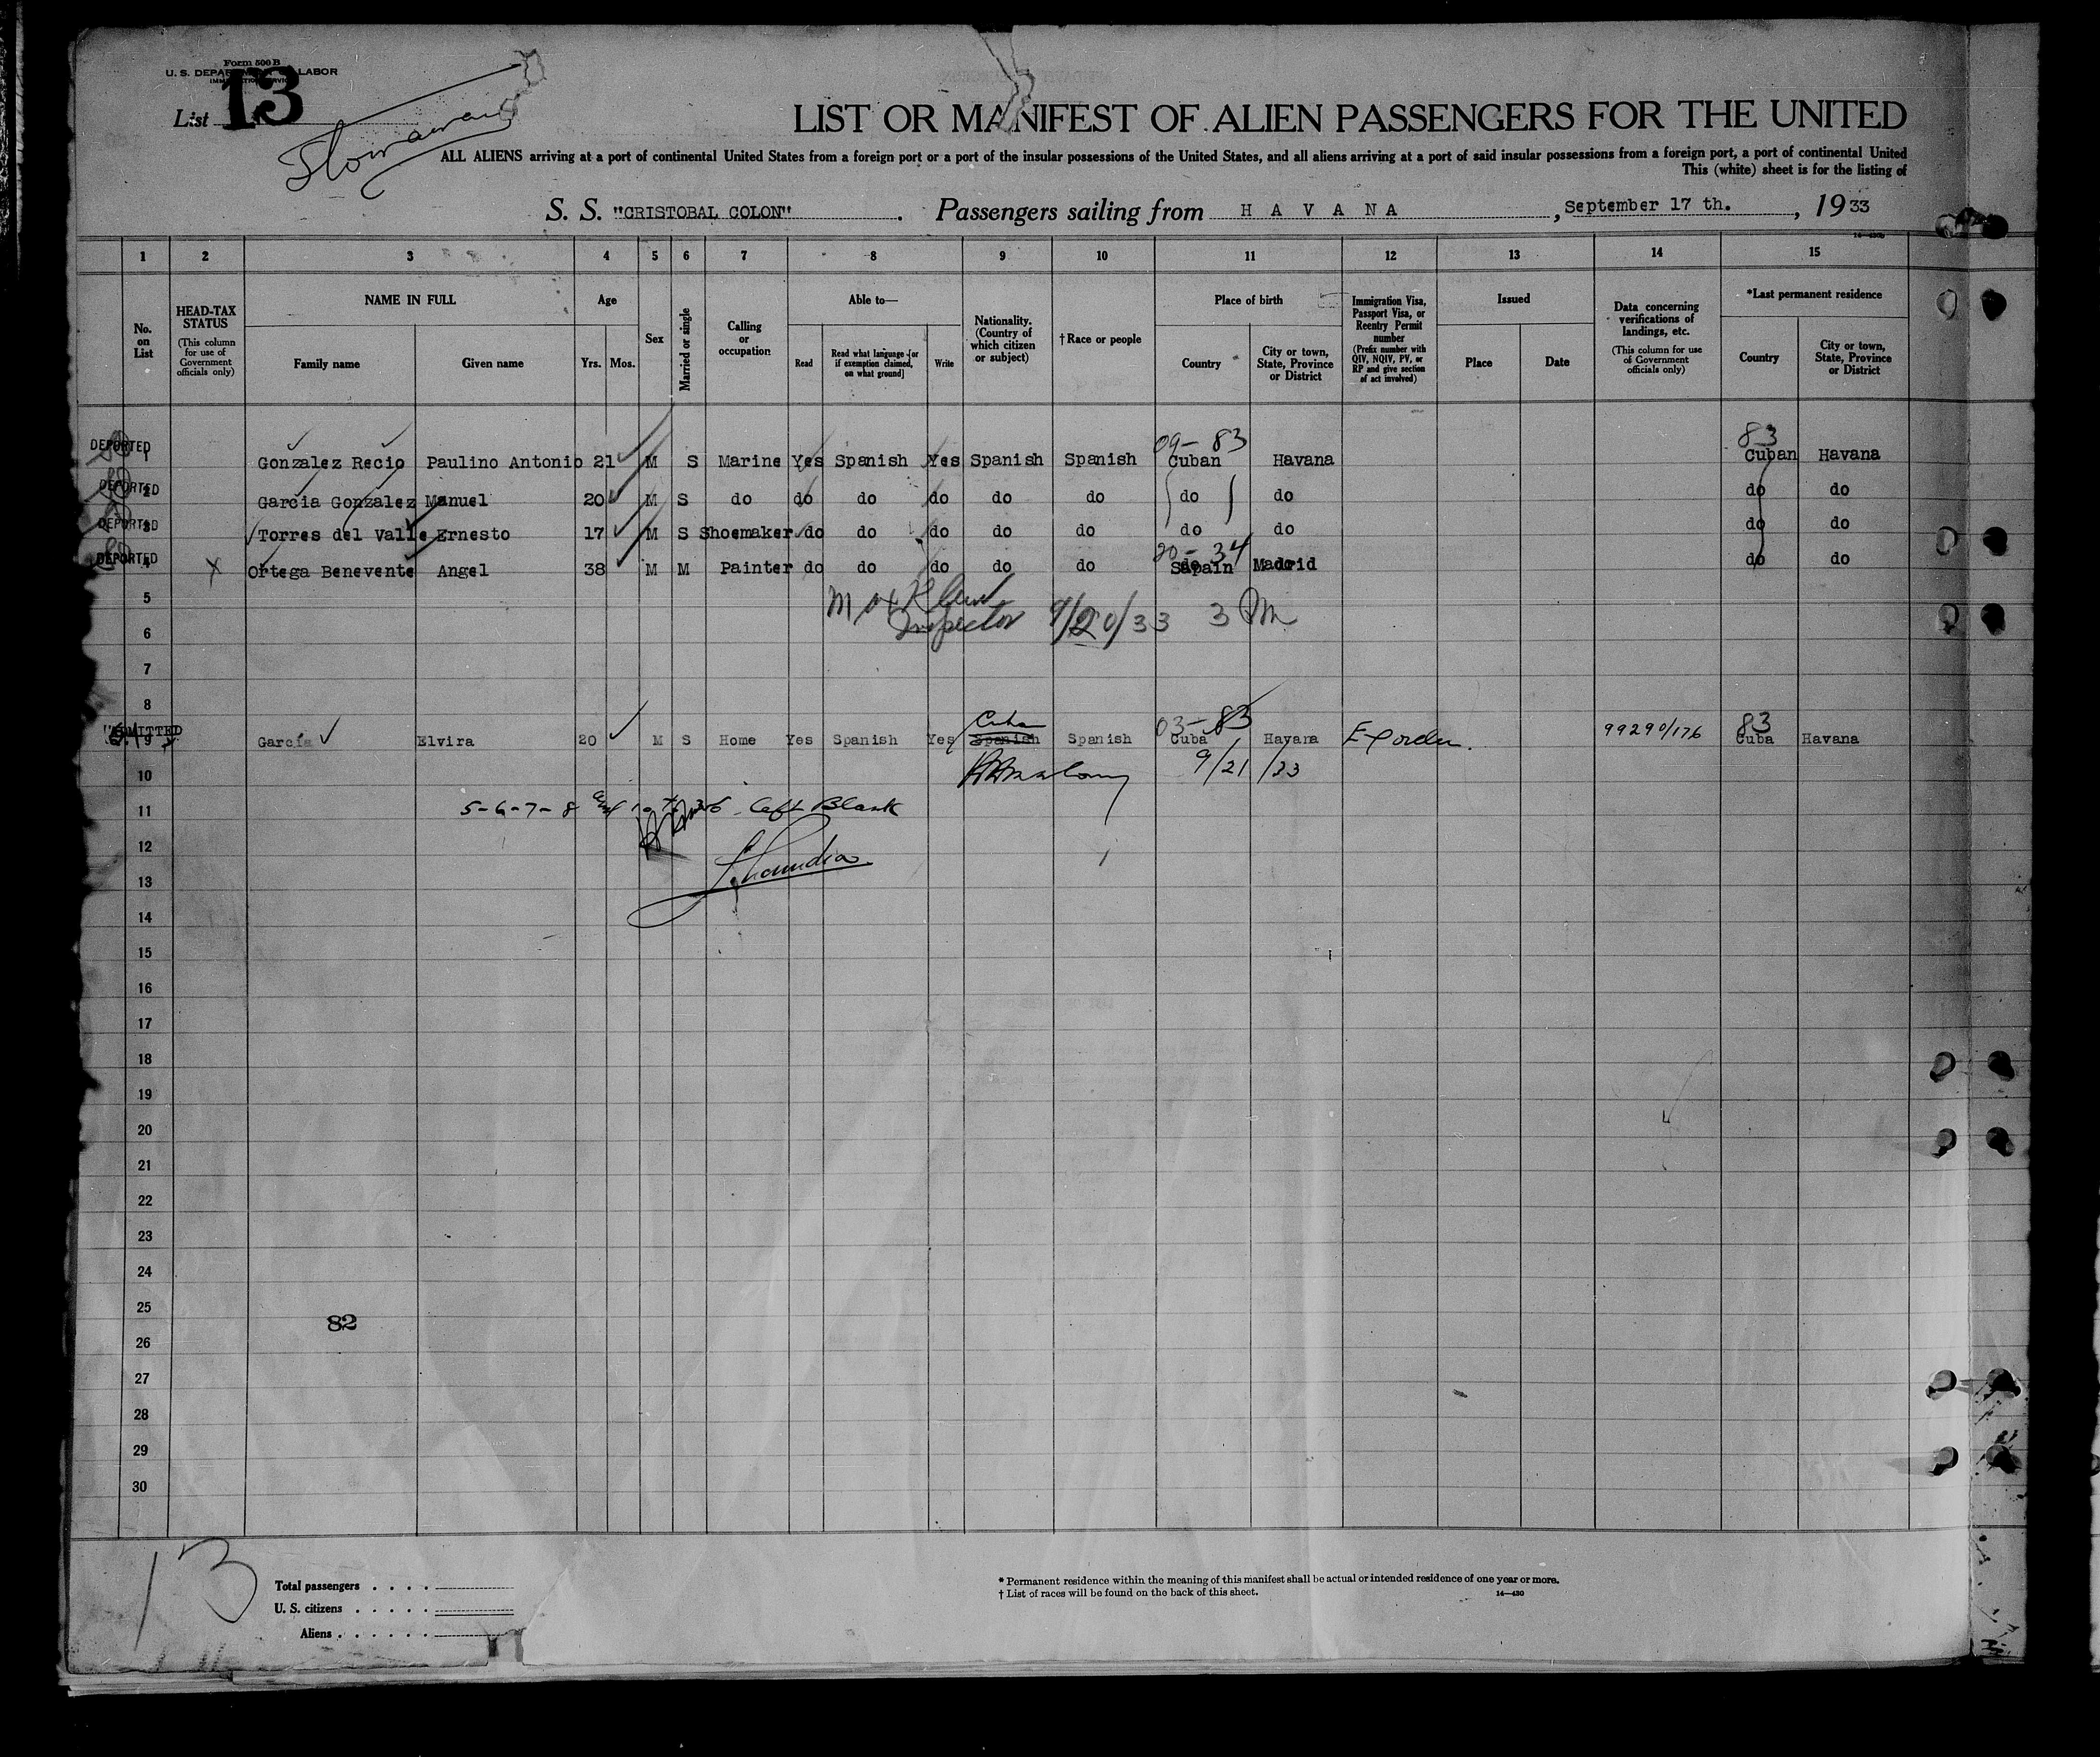 Form 500 B
U. S. DEPARTMENT OF LABOR
List 13
LIST OR MANIFEST OF ALIEN PASSENGERS FOR THE UNITED
ALL ALIENS arriving at a port of continental United States from a foreign port or a port of the insular possessions of the United States, and all aliens arriving at a port of said insular possessions from a foreign port, a port of continental United
This (white) sheet is for the listing of
S. S. "CRISTOBAL COLON". Passengers sailing from H A V A N A, September 17 th., 1933
1 2 3 4 5 6 7 8 9 10 11 12 13 14 15
No. on List
HEAD-TAX STATUS (This column for use of Government officials only)
NAME IN FULL
Family name Given name
Age
Yrs. Mos.
Sex
Married or single
Calling or occupation
Able to—
Read
Read what language [or if exemption claimed, on what ground]
Write
Nationality. (Country of which citizen or subject)
† Race or people
Place of birth
Country
City or town, State, Province or District
Immigration Visa, Passport Visa, or Reentry Permit number (Prefix number with QIV, NQIV, PV, or RP and give section of act involved)
Issued
Place Date
Data concerning verifications of landings, etc. (This column for use of Government officials only)
*Last permanent residence
Country
City or town, State, Province or District
09-83 83
DEPORTED 1 Gonzalez Recio Paulino Antonio 21 M S Marine Yes Spanish Yes Spanish Spanish Cuban Havana Cuban Havana
DEPORTED 2 Garcia Gonzalez Manuel 20 M S do do do do do do do do do do
DEPORTED 3 Torres del Valle Ernesto 17 M S Shoemaker do do do do do do do do do
20-34
DEPORTED 4 X Ortega Benevente Angel 38 M M Painter do do do do do Sapain Madrid do do
5
Inspector 9/20/33
6
7
8
Cuba 03-83 83
ADMITTED 9 Garcia Elvira 20 M S Home Yes Spanish Yes Spanish Spanish Cuba Havana 99290/176 Cuba Havana
10 9/21/33
11 5-6-7-8 and 10 to 30 left Blank
12
13
14
15
16
17
18
19
20
21
22
23
24
25
82
26
27
28
29
30
13
Total passengers . . . .
U. S. citizens . . . . .
Aliens . . . . . .
* Permanent residence within the meaning of this manifest shall be actual or intended residence of one year or more.
† List of races will be found on the back of this sheet.
14—430